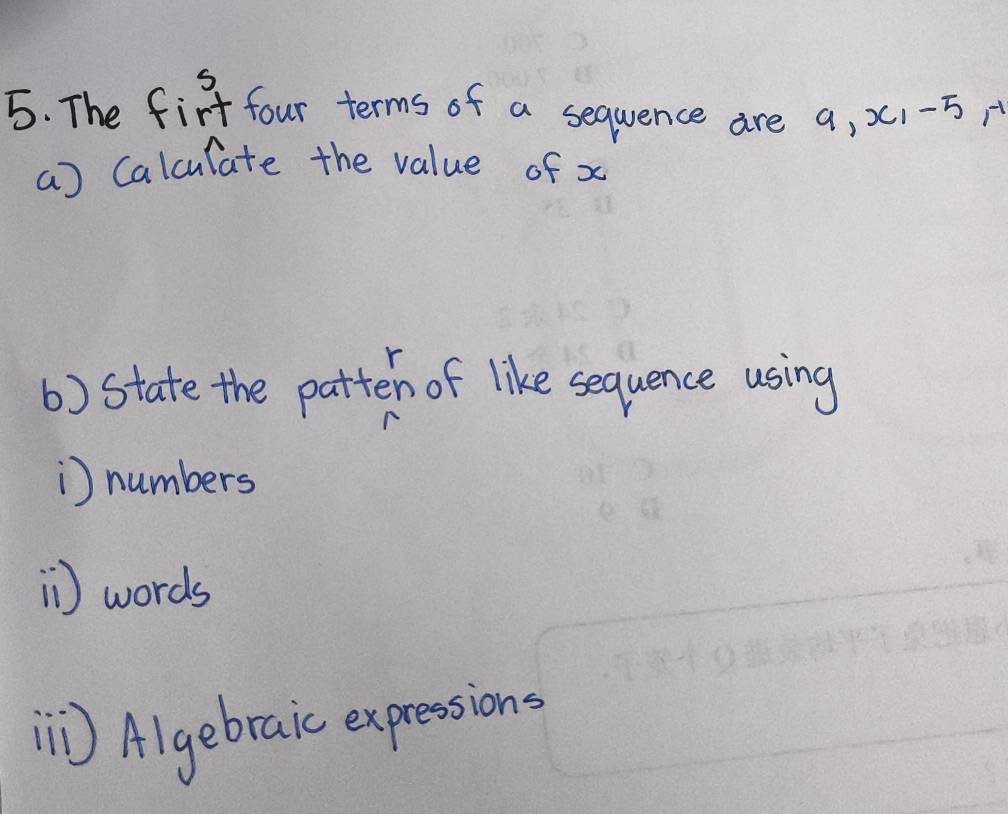 5. The first four terms of a sequence are 9, x, -5, -1
a) Calculate the value of x
b) State the pattern of like sequence using
i) numbers
ii) words
iii) Algebraic expressions